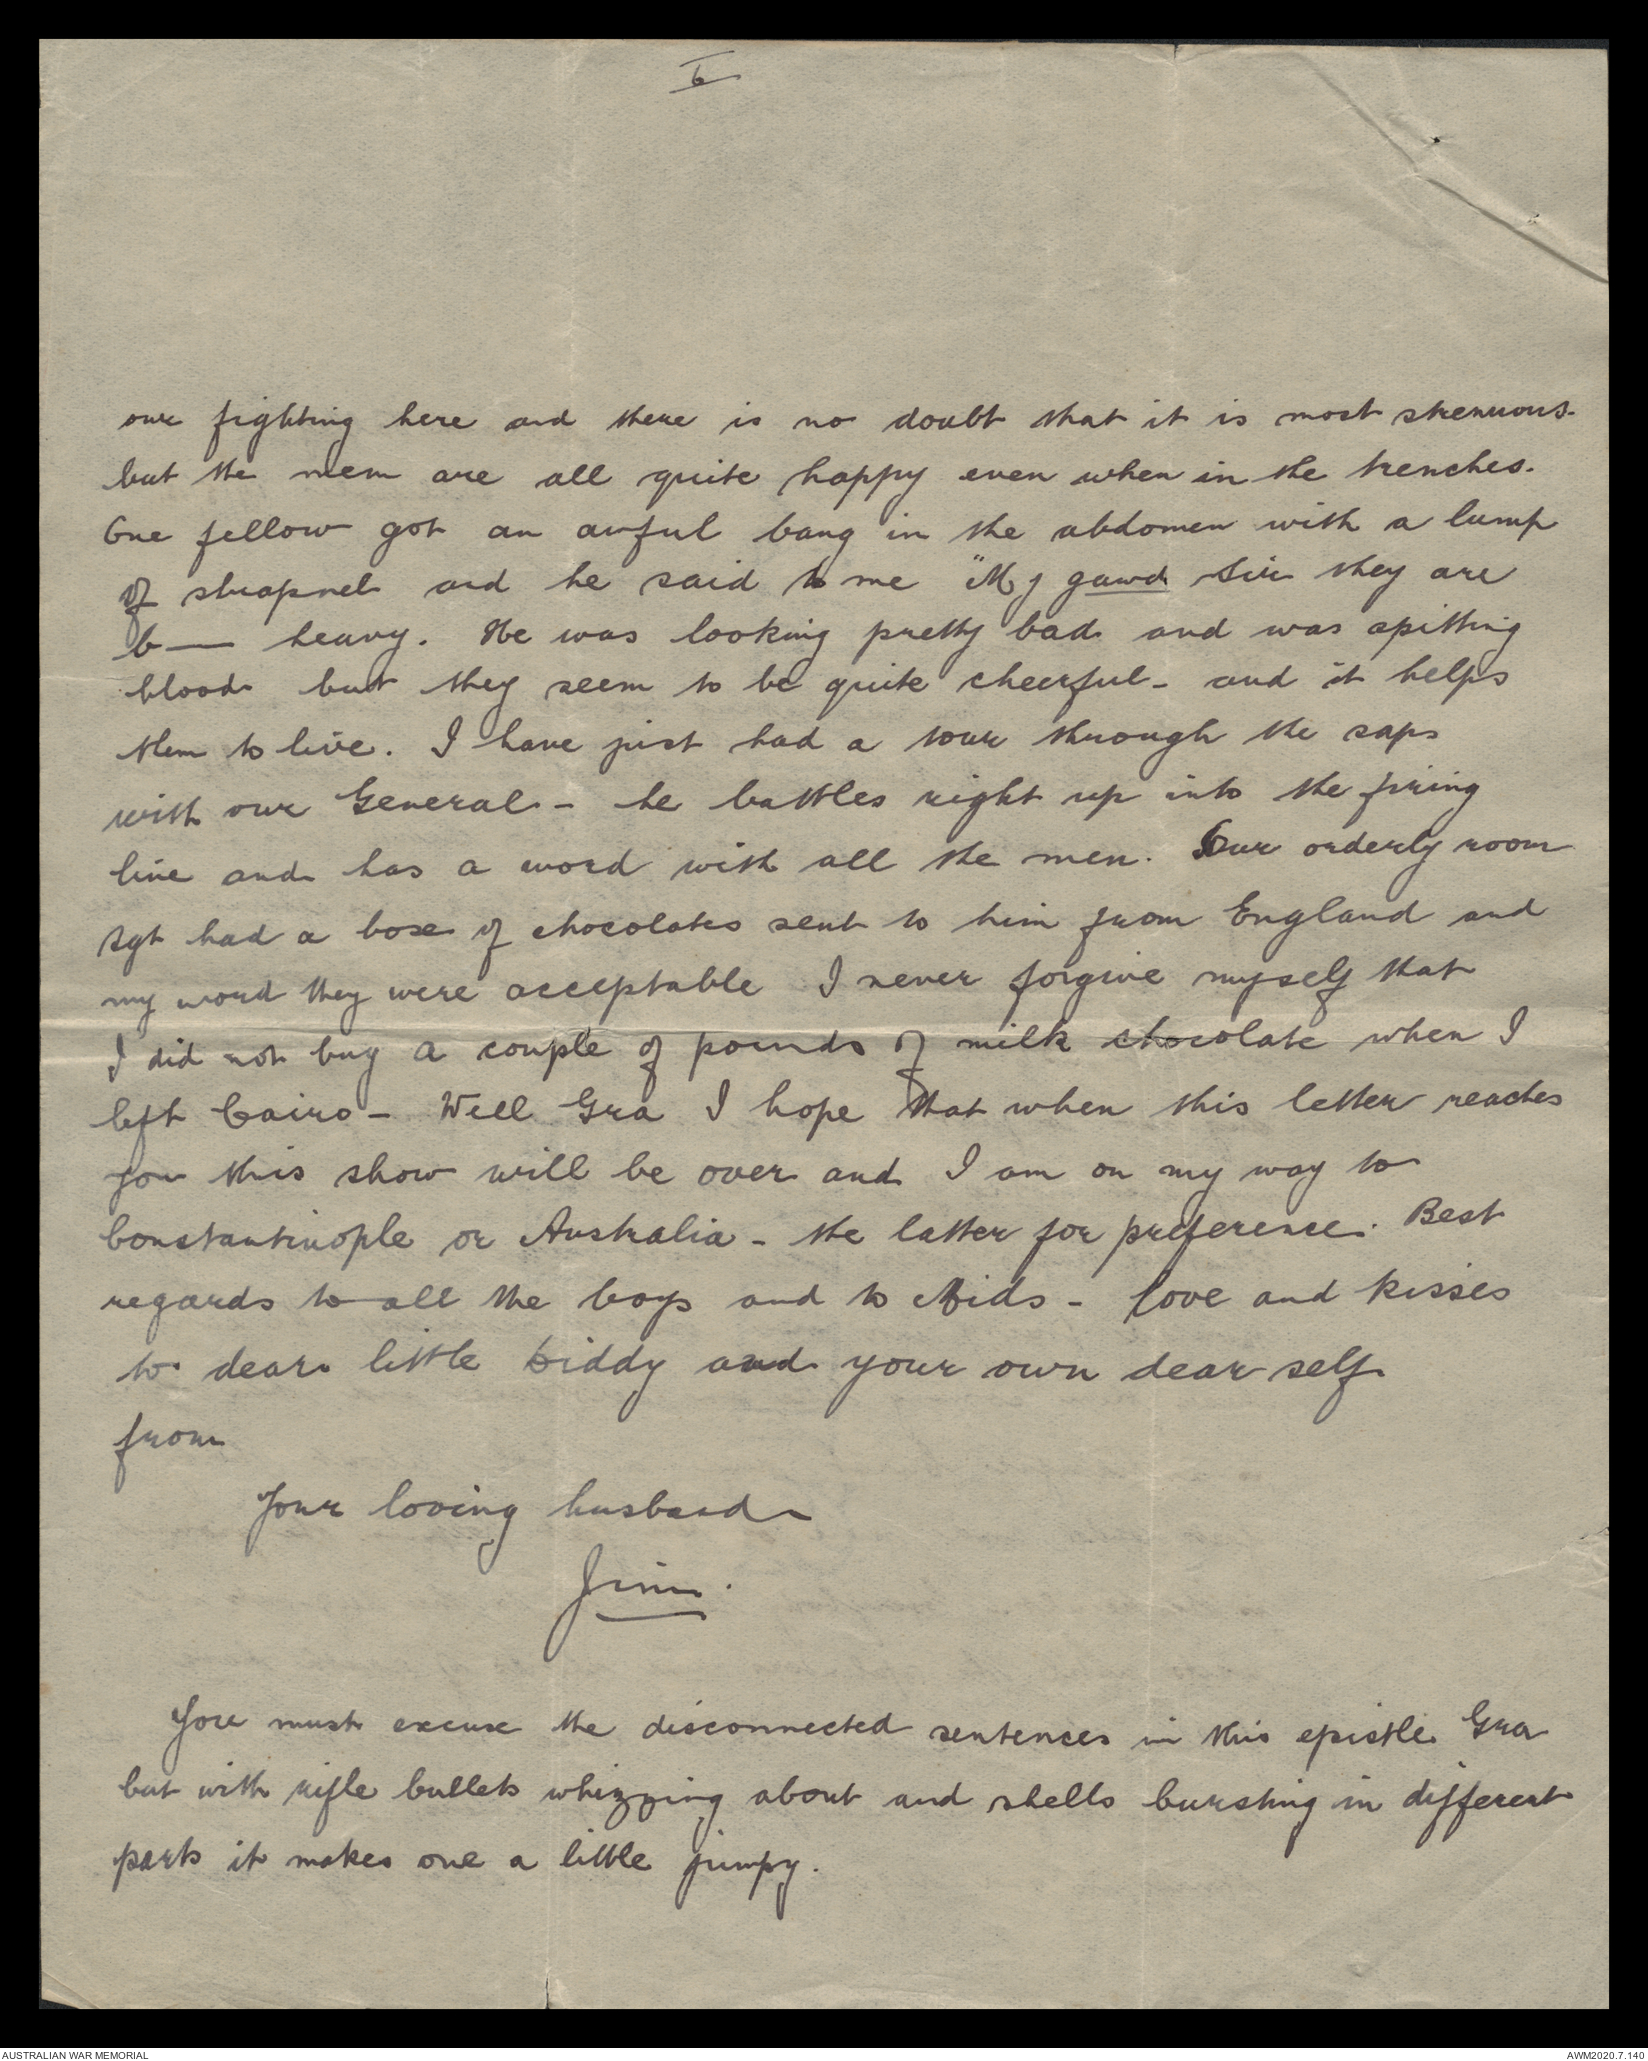 6
our fighting here and there is no doubt that it is most strenuous.
but the men are all quite happy even when in the trenches.
One fellow got an awful bang in the abdomen with a lump
of shrapnel and he said to me "My gawd Sir they are
b— heavy. He was looking pretty bad and was spitting
blood but they seem to be quite cheerful - and it helps
them to live. I have just had a tour through the saps
with our General - he battles right up into the firing
line and has a word with all the men. Our orderly room
Sgt had a box of chocolates sent to him from England and
my word they were acceptable I never forgive myself that
I did not buy a couple of pounds of milk chocolate when I
left Cairo - Well Gra I hope that when this letter reaches
you this show will be over and I am on my way to
Constantinople or Australia - the latter for preference. Best
regards to all the boys and to Mids - love and kisses
to dear little biddy and your own dear self
from
Your loving husband
Jim.
You must excuse the disconnected sentences in this epistle Gra
but with rifle bullets whizzing about and shells bursting in different
parts it makes one a little jumpy.
AUSTRALIAN WAR MEMORIAL
AWM2020.7.140